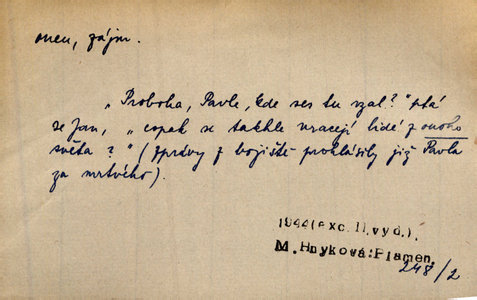 onen, zájm.
„Proboha, Pavle, kde ses tu vzal?" ptá
se Jan, „copak se takhle vracejí lidé z onoho
světa?" (Zprávy z bojiště prohlásily již Pavla
za mrtvého).
1944 (exc. II. vyd.),
M. Hnyková: Plamen,
248/2